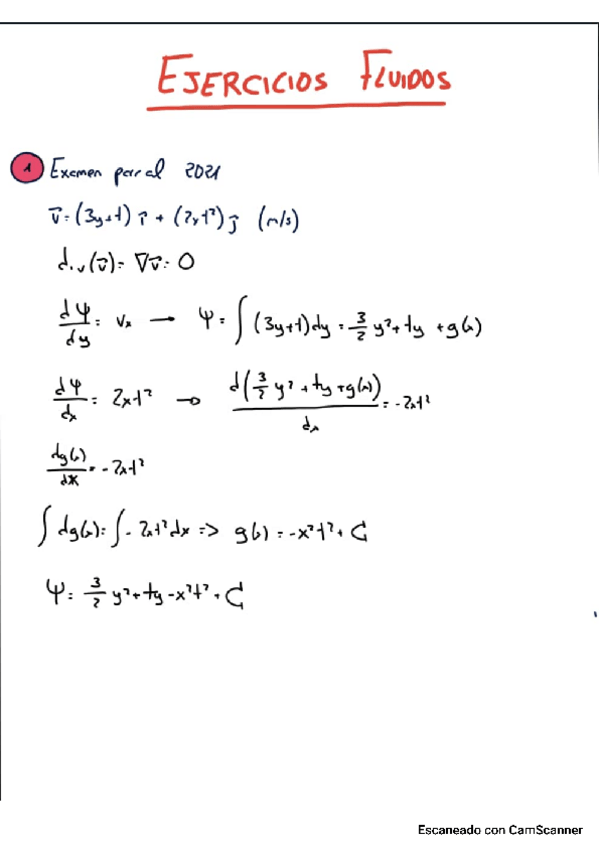 EJERCICIOS FLUIDOS
1 Examen parcial 2021
v⃗ = (3y+t) î + (2xt²) ĵ (m/s)
div(v⃗) = ∇v⃗ = 0
dΨ/dy = Vx → Ψ = ∫(3y+t)dy = 3/2 y² + ty + g(x)
dΨ/dx = 2xt² → d(3/2 y² + ty + g(x))/dx = -2xt²
dg(x)/dx = -2xt²
∫dg(x) = ∫-2xt²dx => g(x) = -x²t² + C
Ψ = 3/2 y² + ty - x²t² + C
Escaneado con CamScanner